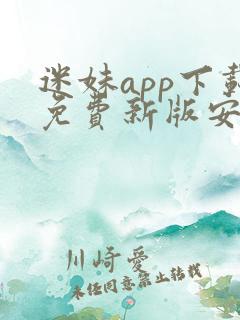 迷妹app下載
免費新版安
川崎愛
未经同意禁止转载